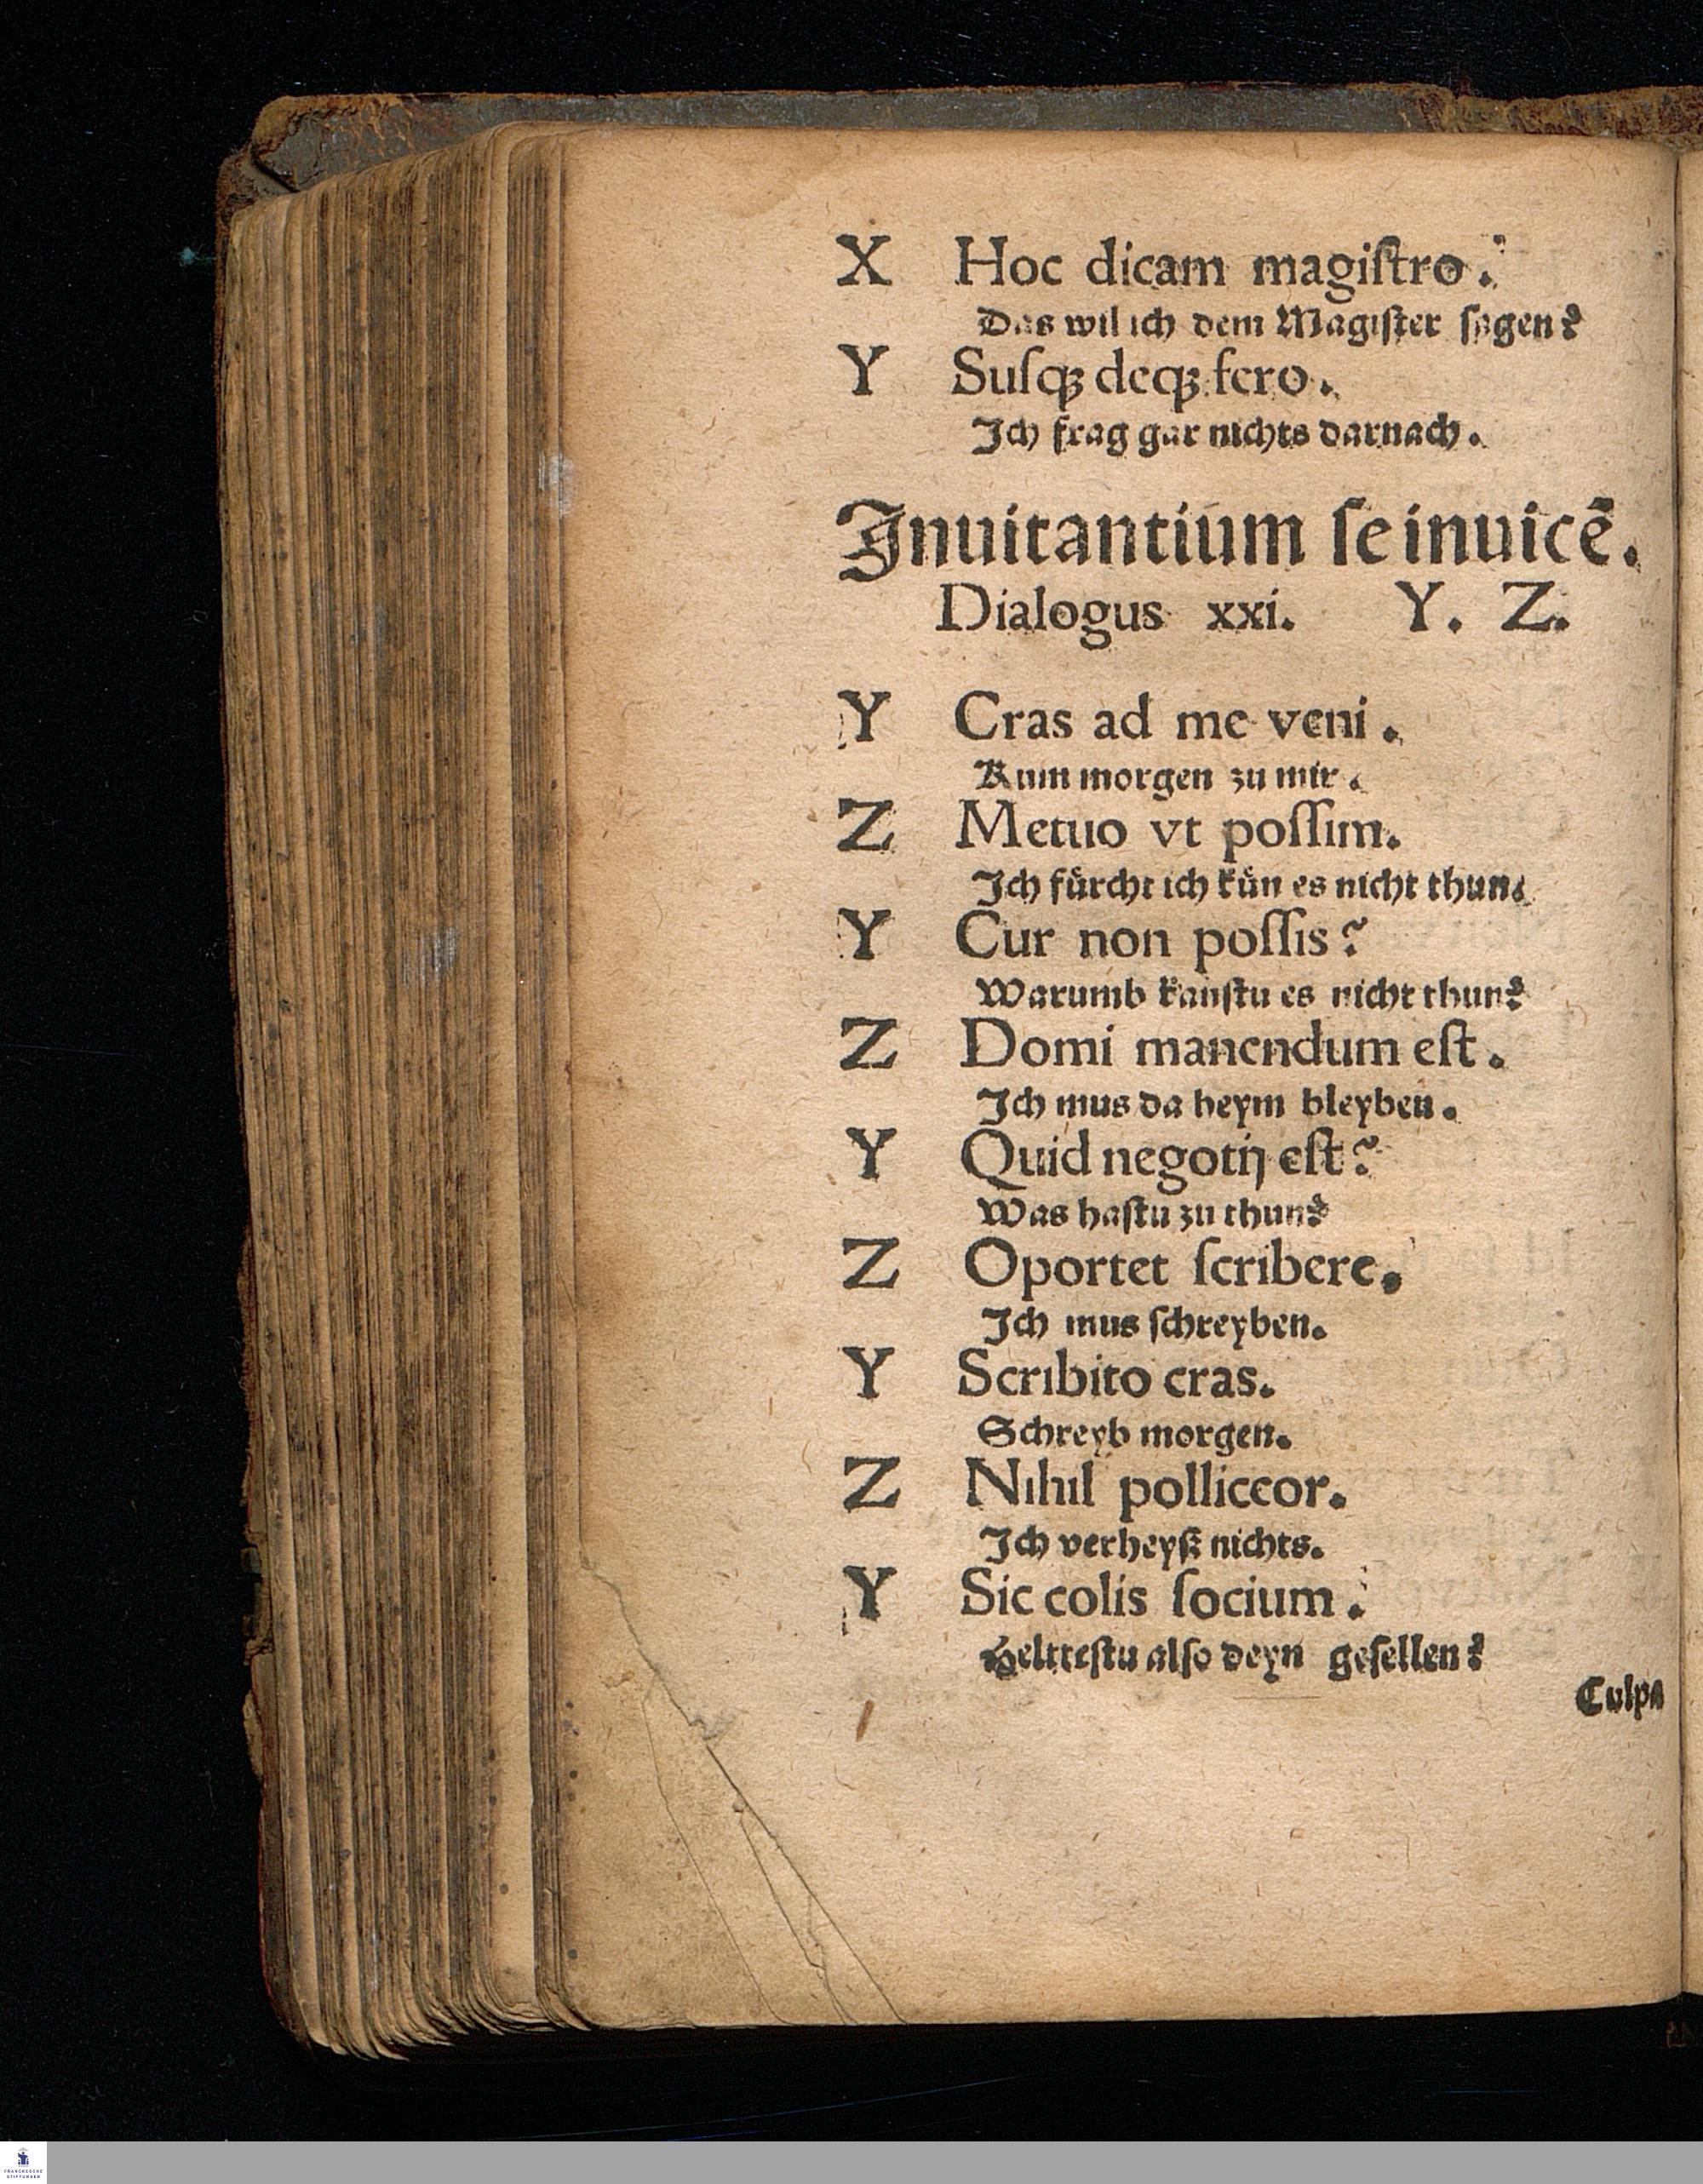 X Hoc dicam magiſtro.
Das wil ich dem Magiſter ſagen?
Y Suſqꝫ deqꝫ fero.
Ich frag gar nichts darnach.
Inuitantium ſe inuicē.
Dialogus xxi. Y. Z.
Y Cras ad me veni.
Kum morgen zu mir.
Z Metuo vt poſſim.
Ich fürcht ich kün es nicht thun.
Y Cur non poſſis?
Warumb kanſtu es nicht thun?
Z Domi manendum eſt.
Ich mus da heym bleyben.
Y Quid negotij eſt?
Was haſtu zu thun?
Z Oportet ſcribere.
Ich mus ſchreyben.
Y Scribito cras.
Schreyb morgen.
Z Nihil polliceor.
Ich verheyß nichts.
Y Sic colis ſocium.
Helteſtu alſo deyn geſellen?
Culpa
FRANCKESCHE
STIFTUNGEN